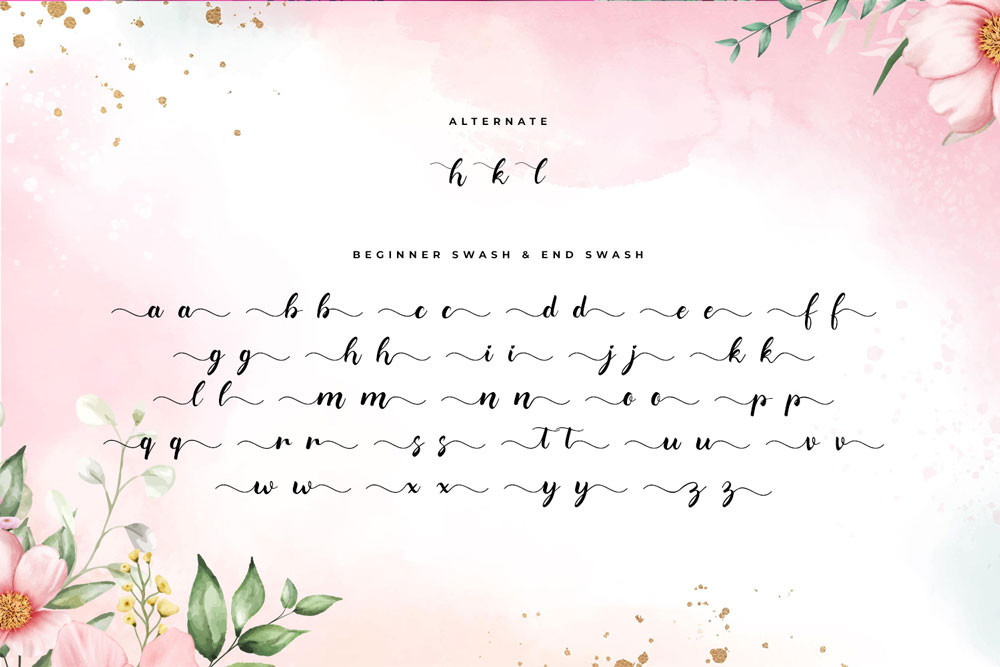 ALTERNATE
h k l
BEGINNER SWASH & END SWASH
a a b b c c d d e e f f
g g h h i i j j k k
l l m m n n o o p p
q q r r s s t t u u v v
w w x x y y z z